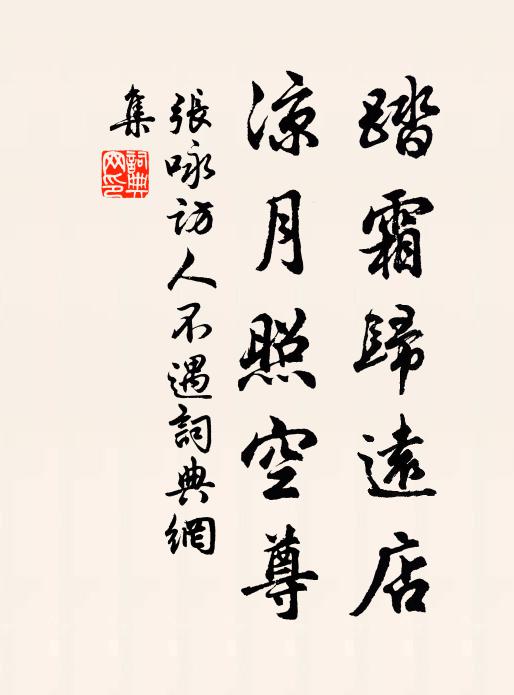 踏霜歸遠店
涼月照空尊
張咏訪人不遇詞典網
集
詞典
网印